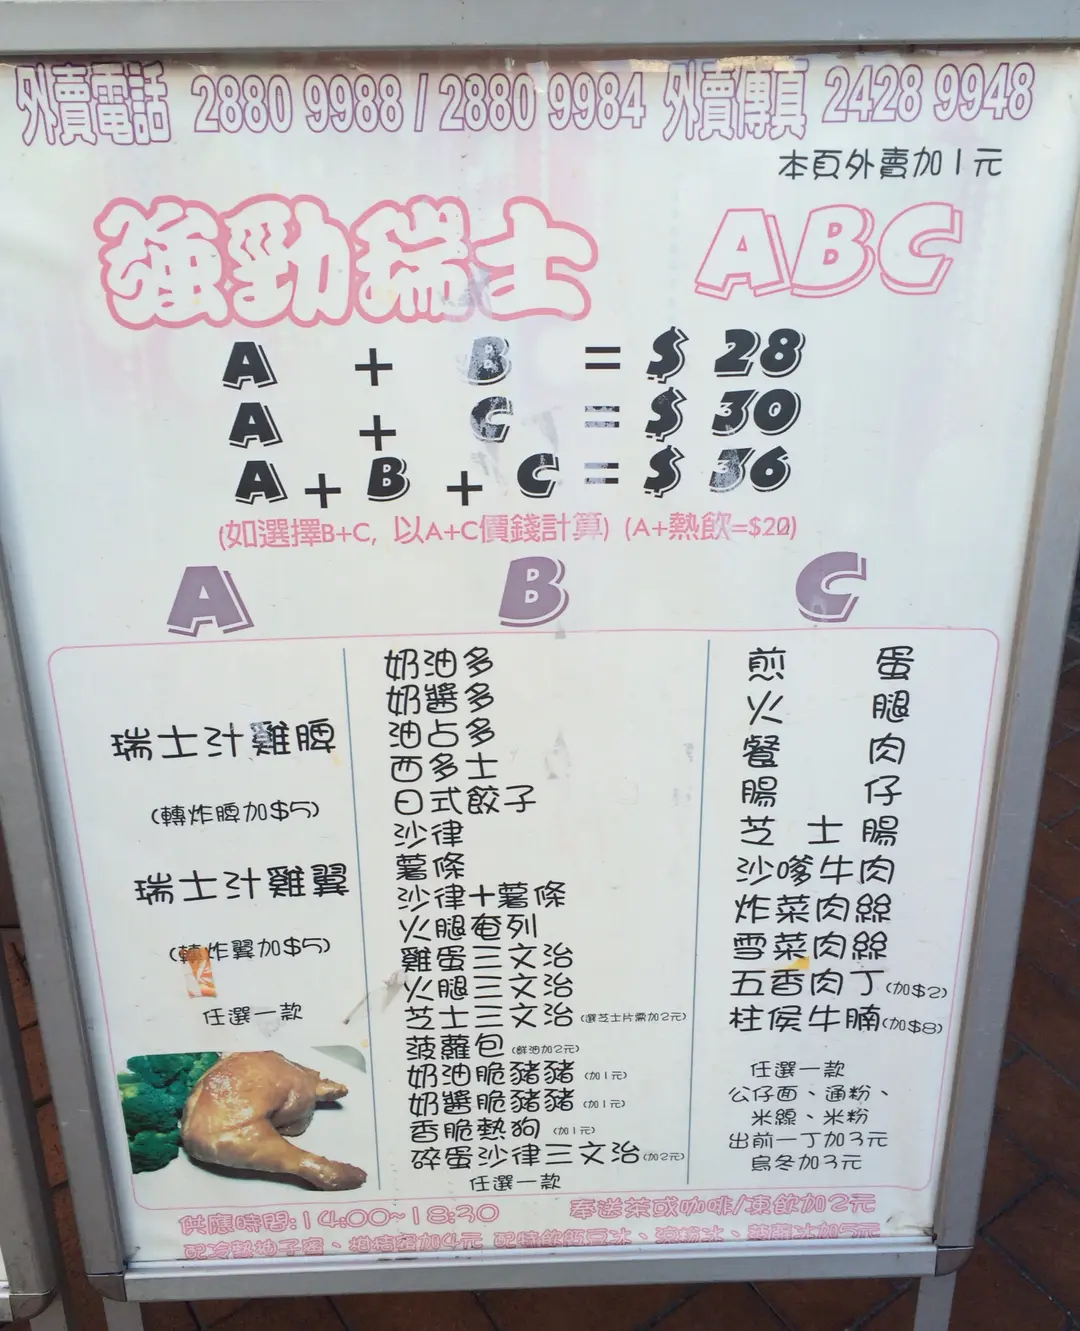 外賣電話 2880 9988 / 2880 9984 外賣傳真 2428 9948
本頁外賣加1元
強勁瑞士 ABC
A + B = $ 28
A + C = $ 30
A + B + C = $ 36
(如選擇B+C, 以A+C價錢計算) (A+熱飲=$20)
A
瑞士汁雞髀
(轉炸髀加$5)
瑞士汁雞翼
(轉炸翼加$5)
任選一款
B
奶油多
奶醬多
油占多
西多士
日式餃子
沙律
薯條
沙律+薯條
火腿奄列
雞蛋三文治
火腿三文治
芝士三文治(選芝士片需加2元)
菠蘿包(鮮油加2元)
奶油脆豬豬(加1元)
奶醬脆豬豬(加1元)
香脆熱狗(加1元)
碎蛋沙律三文治(加2元)
任選一款
C
煎蛋
火腿
餐肉
腸仔
芝士腸
沙嗲牛肉
炸菜肉絲
雪菜肉絲
五香肉丁(加$2)
柱侯牛腩(加$8)
任選一款
公仔面、通粉、
米線、米粉
出前一丁加3元
烏冬加3元
供應時間:14:00~18:30 奉送茶或咖啡/凍飲加2元
配冷熱柚子蜜、柑桔蜜加4元 配特飲紅豆冰、涼粉冰、菠蘿冰加5元